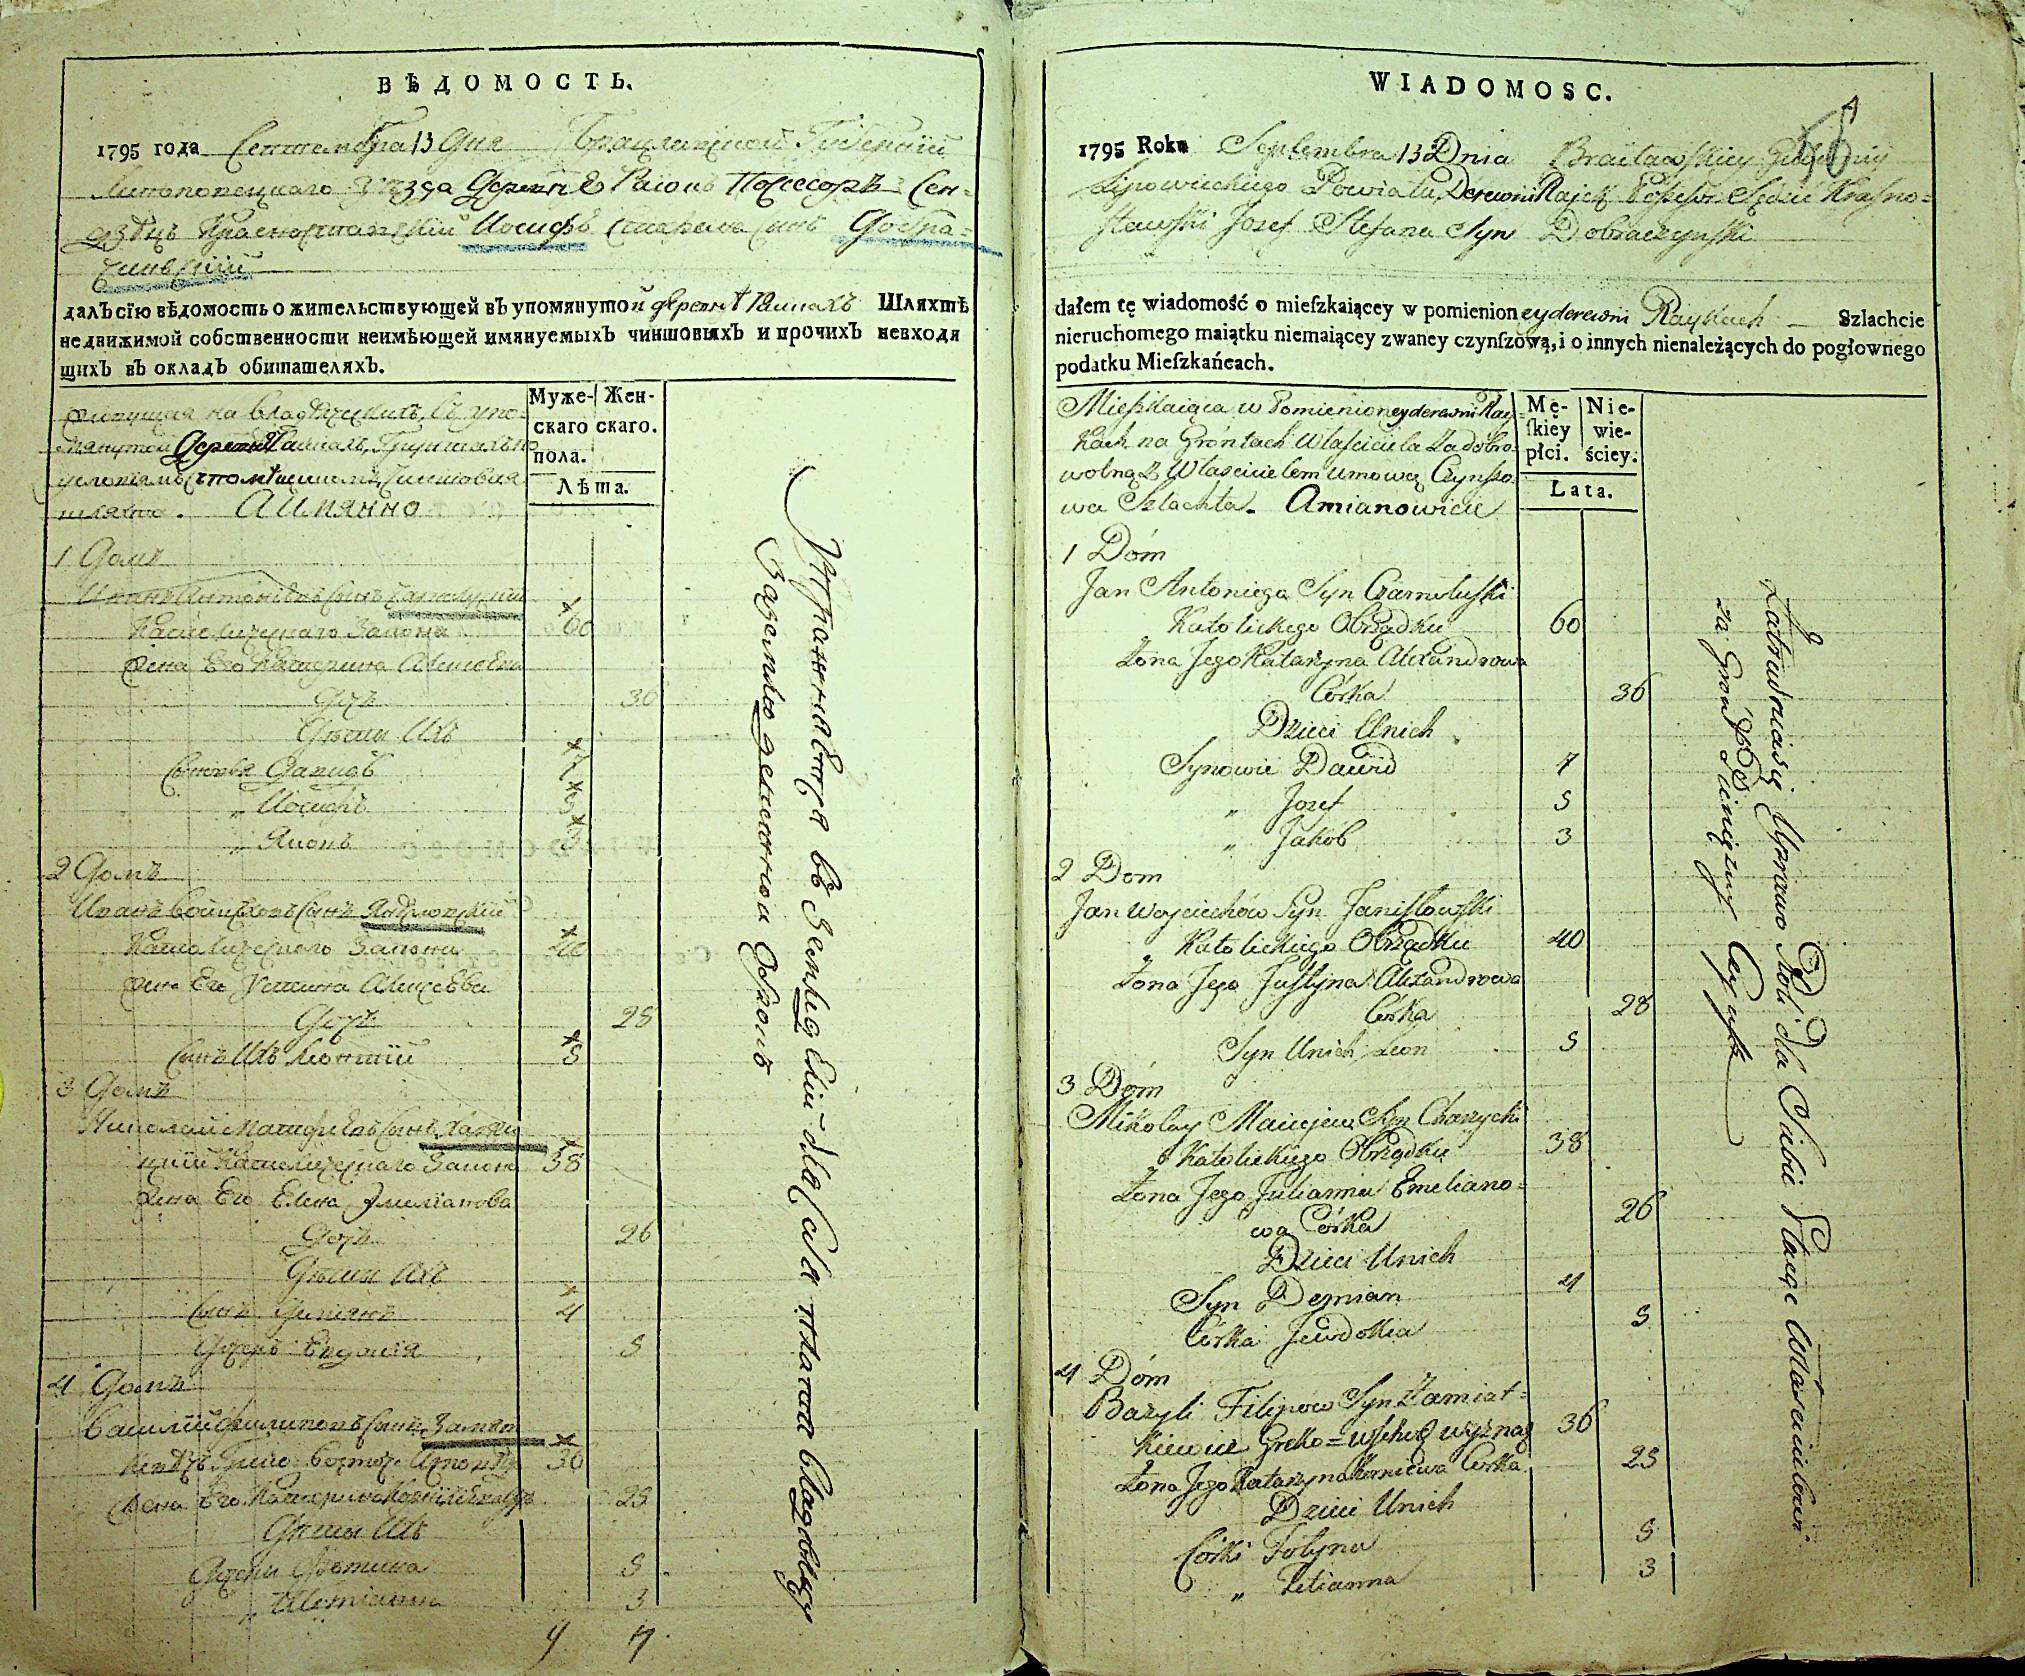 ВѢДОМОСТЬ.
1795 года Сентемвра 13 дня Брацлавской Губернiи
Липовецкаго уезда Деревне Раiокъ Посесоръ Сен-
дзѣцъ Красноставскiй Иосифъ Стефана сынъ Добра-
чинскiй
далъ сiю вѣдомость о жительствующей въ упомянутой деревнѣ Раикахъ Шляхтѣ
недвижимой собственности неимѣющей имянуемыхъ чиншовыхъ и прочихъ невходя
щихъ въ окладъ обитателяхъ.
Муже- Жен-
скаго скаго.
пола.
Лѣта.
живущая на владѣлческихъ въ упо-
мянутой Деревнѣ Раикахъ Грунтахъ по
условiямъ с помѣщикомъ Чиншовая
шляхта. А Имянно
1 Домъ
Иванъ Антонiевъ сынъ Чарнолускiй
Католическаго Закона 60
жена Его Катерина Алексеева
Дочь 36
Дѣти Ихъ
Сыновья Давидъ 7
„ Иосифъ 5
„ Яковъ 3
2 Домъ
Иванъ Войцеховъ сынъ
Католическаго Закона 40
жена Его Устина Алексеева
Дочь 28
Сынъ Ихъ Леонтiй 5
3 Домъ
Николай Матфiевъ сынъ Харжи
цкiй Католическаго Закона 38
жена Его Елена Эмилiанова
Дочь 26
Дѣти Ихъ
Сынъ Демянъ 4
Дочерь Евдокiя 5
4 Домъ
Василiй Филиповъ сынъ Замят
кевичъ Греко Восточ. 36
Жена Его Катерина Корнiева дочь 25
Дѣти Ихъ
Дочки Фотина 5
„ Татiанна 3
9 7
Упражняется въ Земледелiи для себя платя владельцу
за землю денежной оброкъ
WIADOMOSC.
58
1795 Roku Septembra 13 Dnia Bracławskiey Gubernij
Lipowieckiego Powiatu Derewni Rajek Possesor Sędzic Krasno=
stawski Jozef Stefana Syn Dobraczynski
dałem tę wiadomość o mieſzkaiącey w pomienioney derewni Raykach — Szlachcie
nieruchomego maiątku niemaiącey zwaney czynſzową, i o innych nienależących do pogłownego
podatku Mieſzkańcach.
Mę- Nie-
ſkiéy wie-
płci. ściey.
Lata.
Mieszkaiąca w Pomienioney derewni Ray
kach na Gróntach Własciciela Za dobro-
wolną z Własicielem umową Czynszo
wa Szlachta. Amianowicie
1 Dóm
Jan Antoniego Syn Czarnoluski
Katolickiego Obrządku 60
Żona Jego Katarzyna Alexandrowa
Córka 36
Dzieci Unich
Synowie Dawid 7
„ Jozef 5
„ Jakob 3
2 Dom
Jan Woyciechów Syn Janisłowski
Katolickiego Obrządku 40
Żona Jego Justyna Alexandrowa
Córka 28
Syn Unich Leon 5
3 Dóm
Mikołay Maciejew Syn Charzycki
Katolickiego Obrządku 38
Żona Jego Julianna Emeliano=
wa Córka 26
Dzieci Unich
Syn Demian 4
Córka Jewdokia 5
4 Dóm
Bazyli Filipów Syn Zamiat=
kiewicz Greko=wschod wyznaз 36
Żona Jego Katarzyna Korniewa Corka 25
Dzieci Unich
Córki Fotyna 5
„ Tetianna 3
Zatrudniaią się Uprawą Roli dla Siebie Płacąc Własicielowi
za Grónt Pieniężny Czynsz